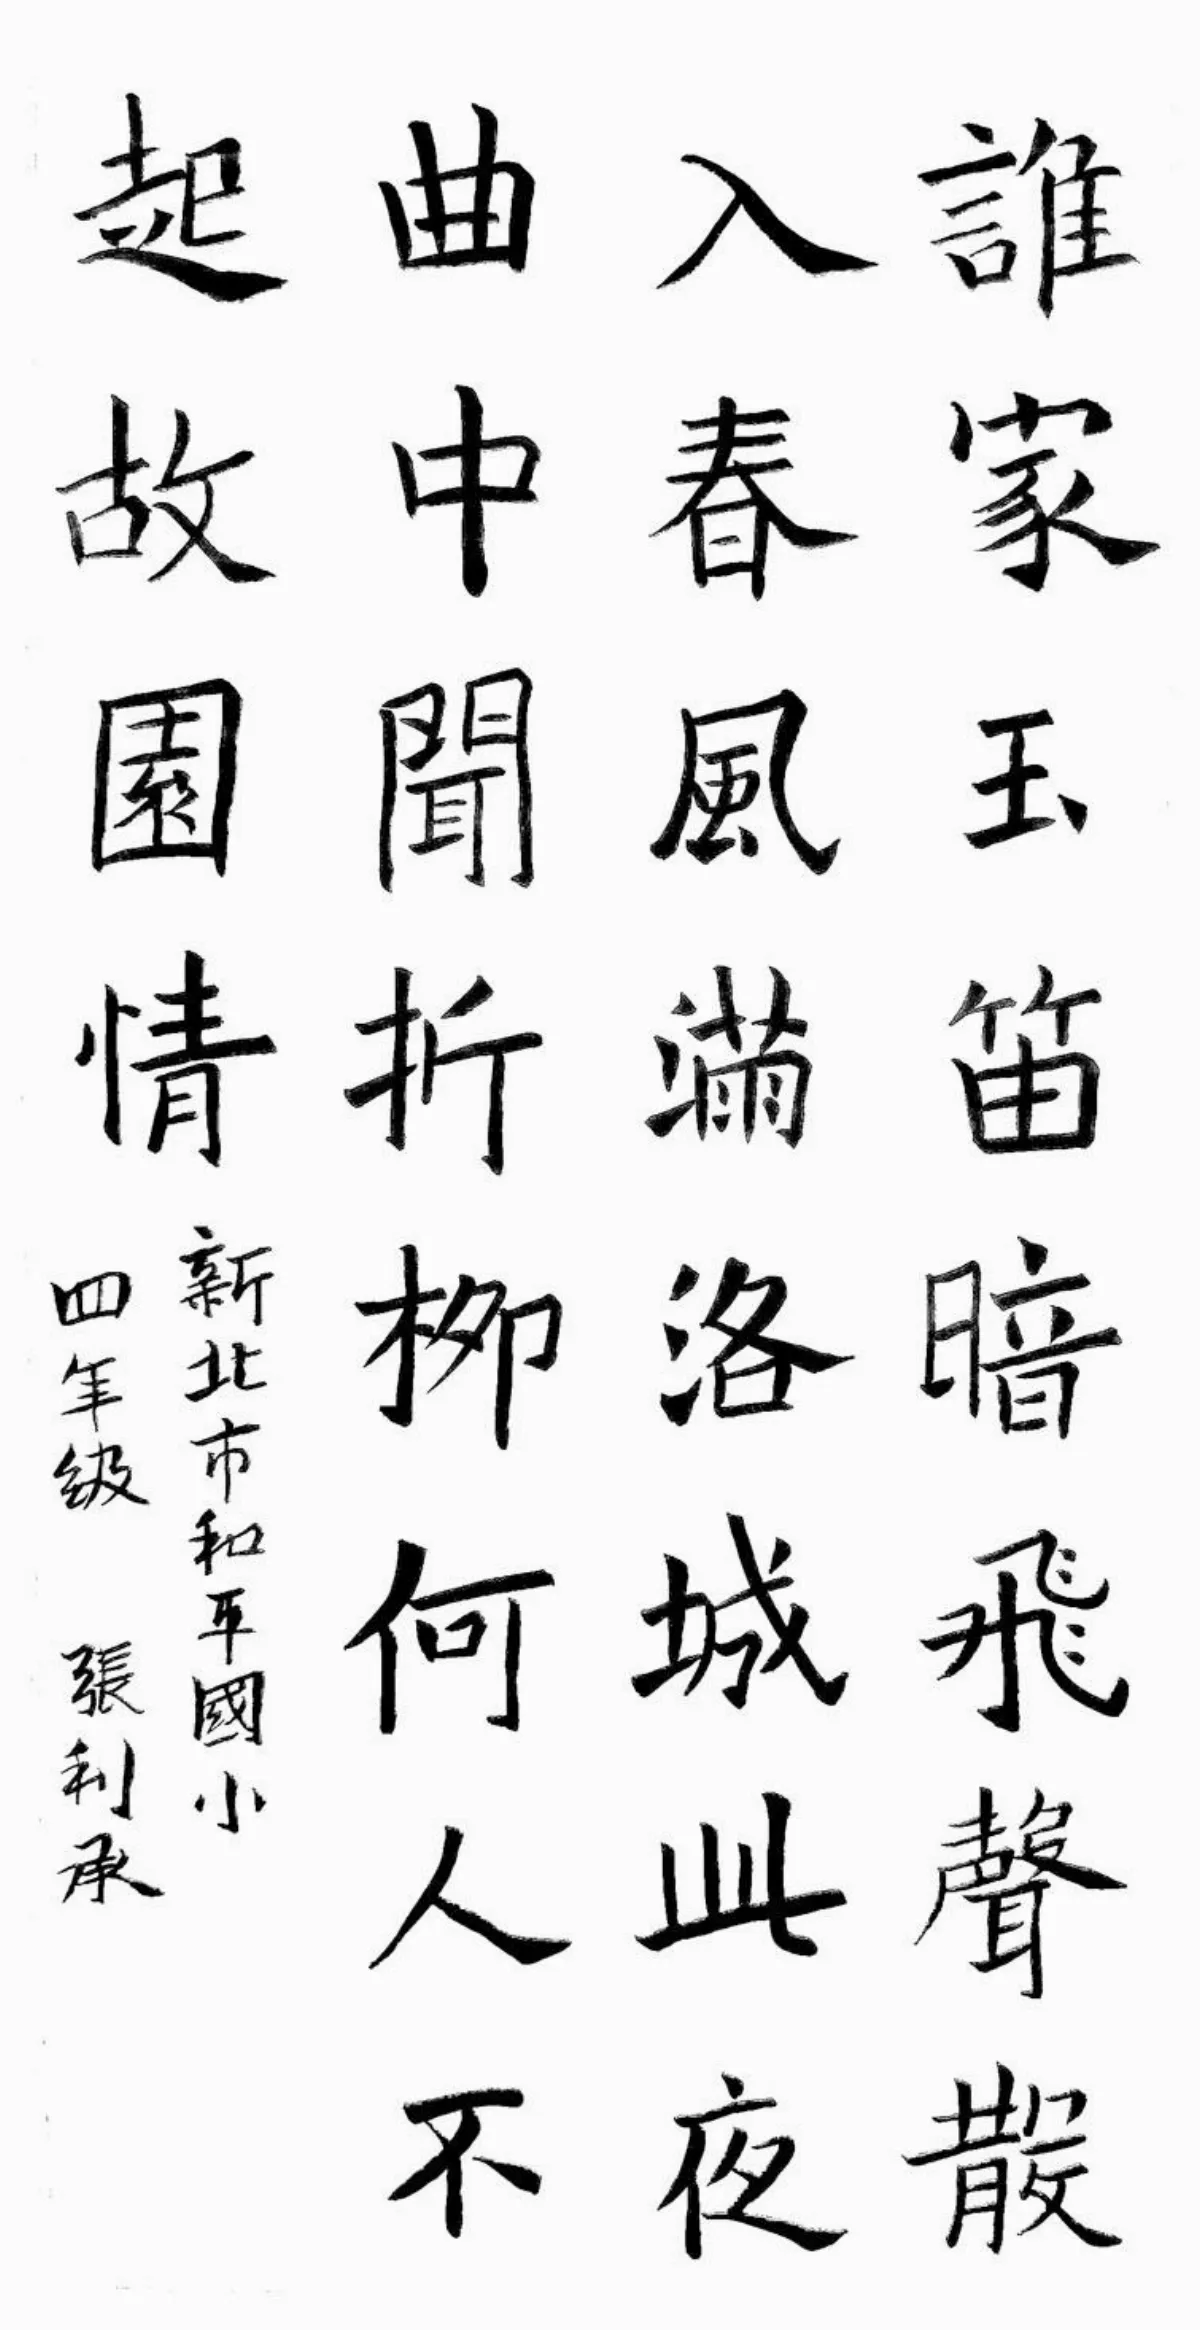 誰家玉笛暗飛聲散
入春風滿洛城此夜
曲中聞折柳何人不
起故園情
新北市和平國小
四年級 張利承